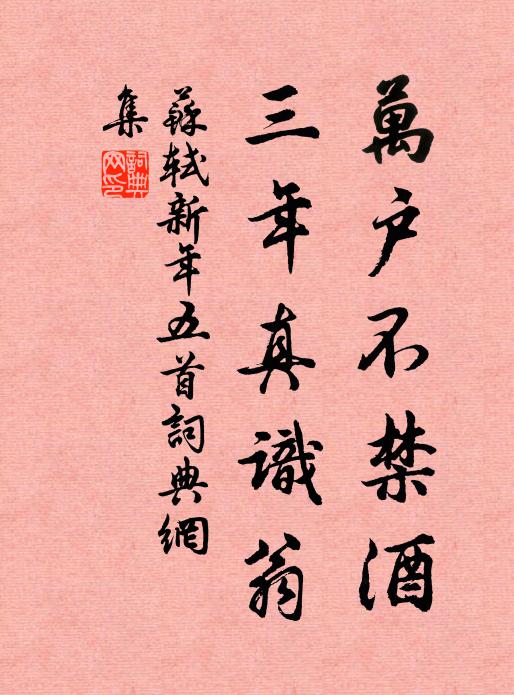 萬户不禁酒
三年真識翁
蘇軾新年五首詞典網
集
詞典
网印